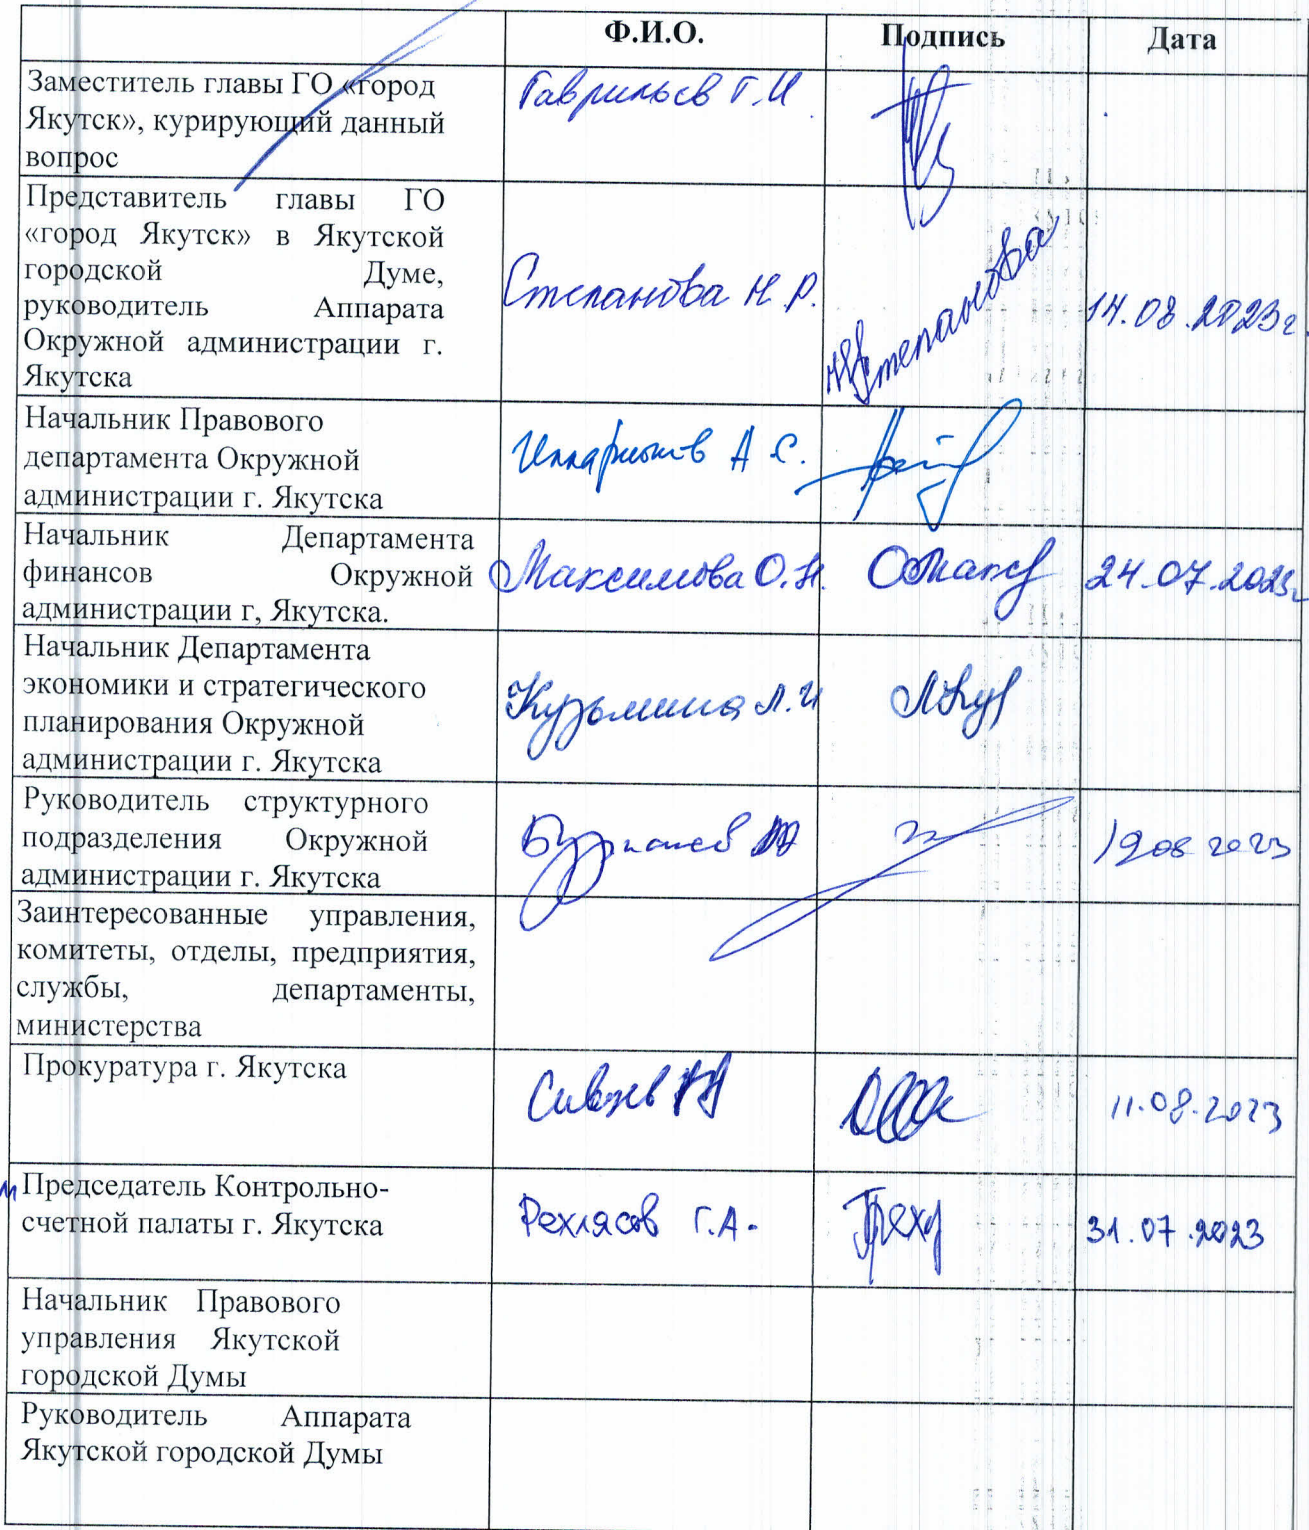 Ф.И.О. Подпись Дата
Заместитель главы ГО «город
Якутск», курирующий данный
вопрос
Гаврильев Г.И
Представитель главы ГО
«город Якутск» в Якутской
городской Думе,
руководитель Аппарата
Окружной администрации г.
Якутска
Степанова Н.Р.
Степанова
14.08.2023г.
Начальник Правового
департамента Окружной
администрации г. Якутска
Илларионов А.С.
Начальник Департамента
финансов Окружной
администрации г, Якутска.
Максимова О.Н.
24.07.2023г
Начальник Департамента
экономики и стратегического
планирования Окружной
администрации г. Якутска
Кузьмина Л.И
Руководитель структурного
подразделения Окружной
администрации г. Якутска
2023
Заинтересованные управления,
комитеты, отделы, предприятия,
службы, департаменты,
министерства
Прокуратура г. Якутска
Сивцев
11.08.2023
Председатель Контрольно-
счетной палаты г. Якутска
Рехлясов Г.А.
31.07.2023
Начальник Правового
управления Якутской
городской Думы
Руководитель Аппарата
Якутской городской Думы